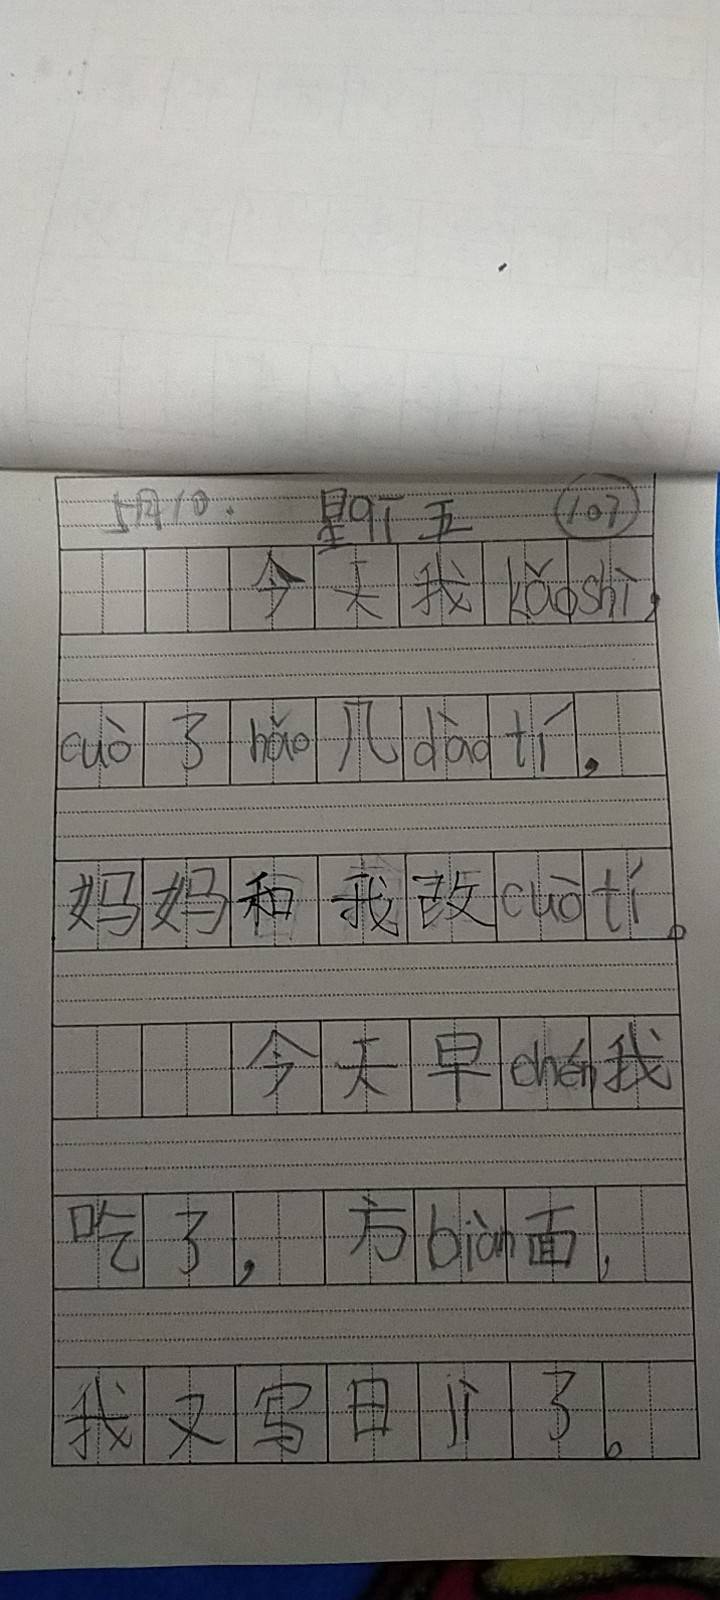 5月10. 星qī五 107
今天我kǎoshì,
cuò了hǎo几dàotí,
妈妈和我改cuòtí。
今天早chén我
吃了,方biàn面,
我又写日jì了。